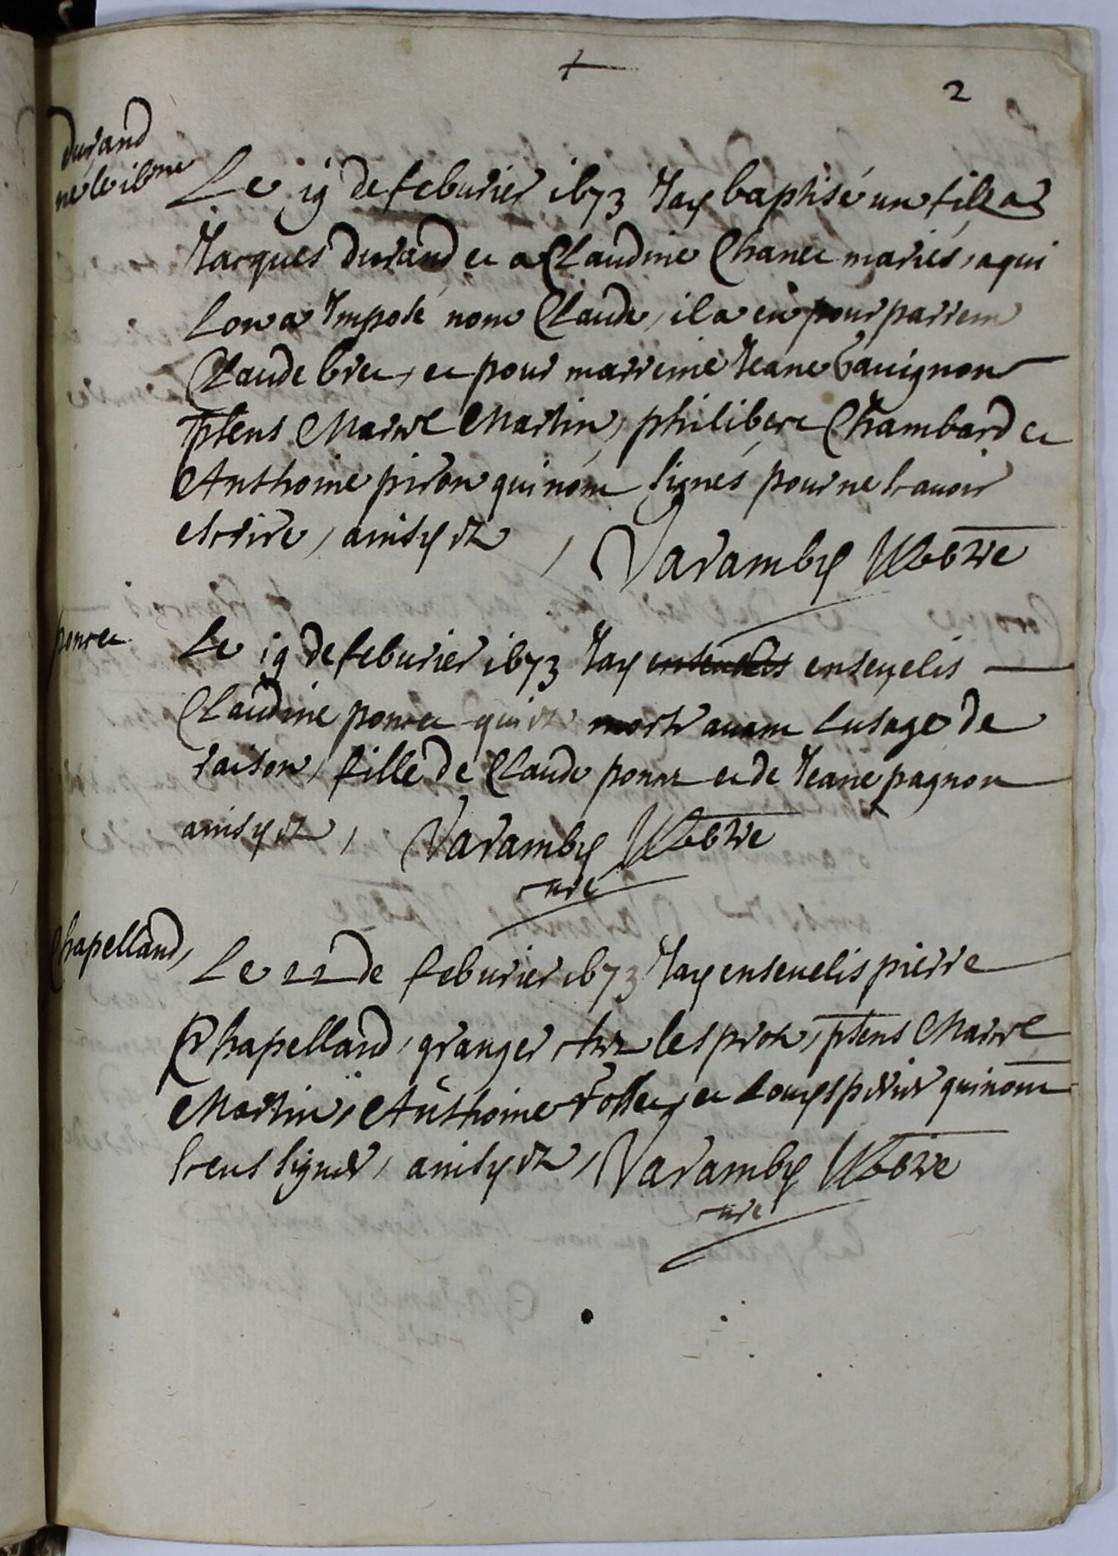 2
durand
né le i6me
Le i9 de feburier i673 Jay baptisé un filz a
Jacques durand et a Claudine Chanet mariés, a qui
Lon a Imposé nom Claude, il a eü pour parrein
Claude bret, et pour marreine Jeane Gauignon
pñts Maitre Martin, philibert Chambard et
Anthoine piron qui nont signés pour ne scauoir
escrire, ainsy est, Varamby
ponct
Le i9 de feburier i673 Jay enseuelis enseuelis
Claudine ponct qui est morte auant lusage de
raison, fille de Claude ponct et de Jeane pagnon
ainsy est, Varamby
curé
Chapelland,
Le 22 de feburier i673 Jay enseuelis pierre
Chapelland, granger chez les prost, pñts Maitre
Martin, Anthoine et Louys perier qui nont
sceus signer, ainsy est, Varamby
curé